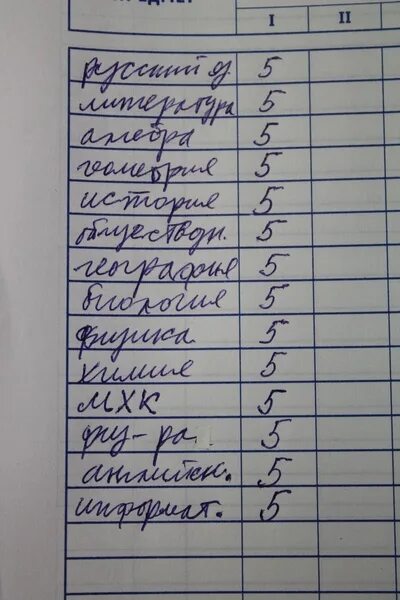 ПРЕДМЕТ
I II
русский яз 5
литература 5
алгебра 5
геометрия 5
история 5
обществозн. 5
география 5
биология 5
физика. 5
химия 5
МХК 5
физ-ра. 5
английск. 5
информат. 5